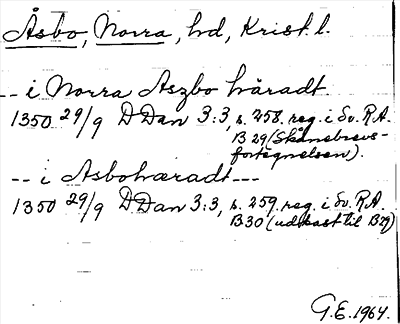 Åsbo, Norra, hd, Krist. l.
-- i Norra Aszbo häradt.
1350 29/9 DDan 3:3, s. 258. reg. i Sv. R.A.
B 29 (Skånebrevs-
fortegnelsen).
-- i Asbohæradt---
1350 29/9 DDan 3:3, s. 259. reg. i Sv. R.A.
B 30 (udkast til B 29)
G.E. 1964.